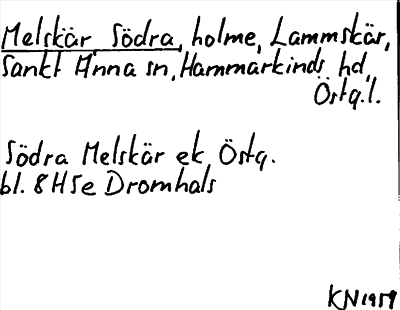 Melskär Södra, holme, Lammskär,
Sankt Anna sn, Hammarkinds hd,
Östg.l.
Södra Melskär ek Östg.
bl. 8H5e Dromhals
KN1959